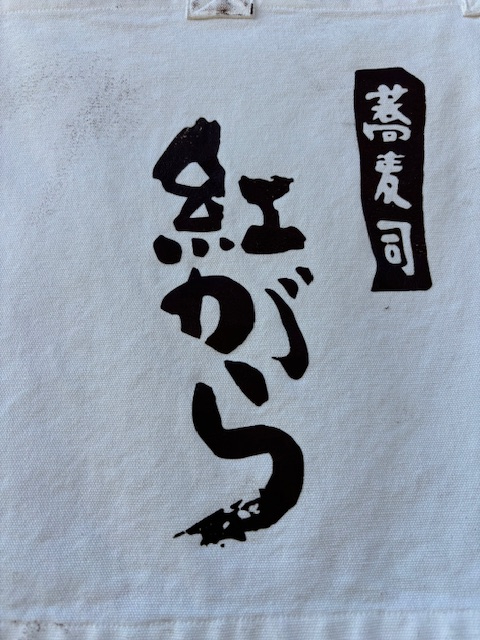 蕎麦司
紅がら